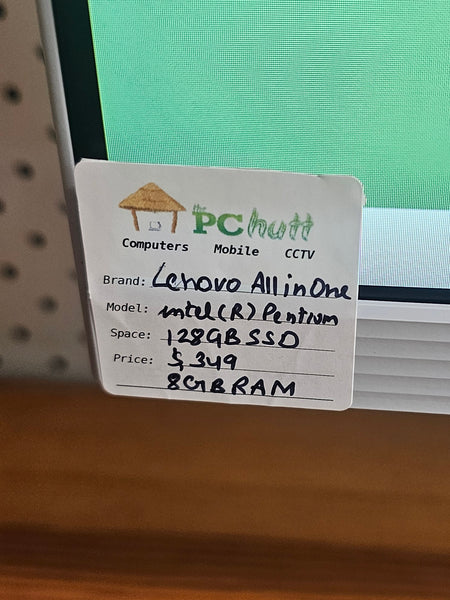 the
PC hutt
Computers Mobile CCTV
Brand: Lenovo All in One
Model: intel(R) Pentium
Space: 128GB SSD
Price: $349
8GB RAM